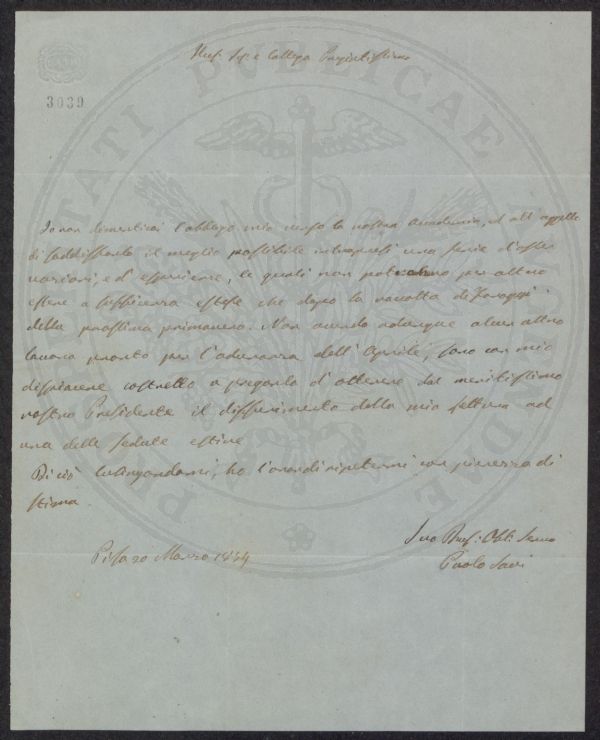 3039
Prof. Sig. e Collega Pregiatissimo
Io non dimenticai l'obbligo mio verso la nostra Accademia, ed all'oggetto
di soddisfarlo il meglio possibile intrapresi una serie d'osser
vazioni, e d'esperienze, le quali non potranno per altro
essere a sufficienza estese che dopo la raccolta di Foraggi
della prossima primavera. Non avendo adunque alcun altro
lavoro pronto per l'adunanza dell'Aprile, sono con mio
dispiacere costretto a pregarla d'ottenere dal meritissimo
nostro Presidente il differimento della mia lettura ad
una delle sedute estive
Di ciò lusingandomi, ho l'onore di ripetermi con pienezza di
stima
Pisa 20 Marzo 1844
Suo Obb. Servo
Paolo Savi
PROSPERITATI PUBLICAE AUGENDAE